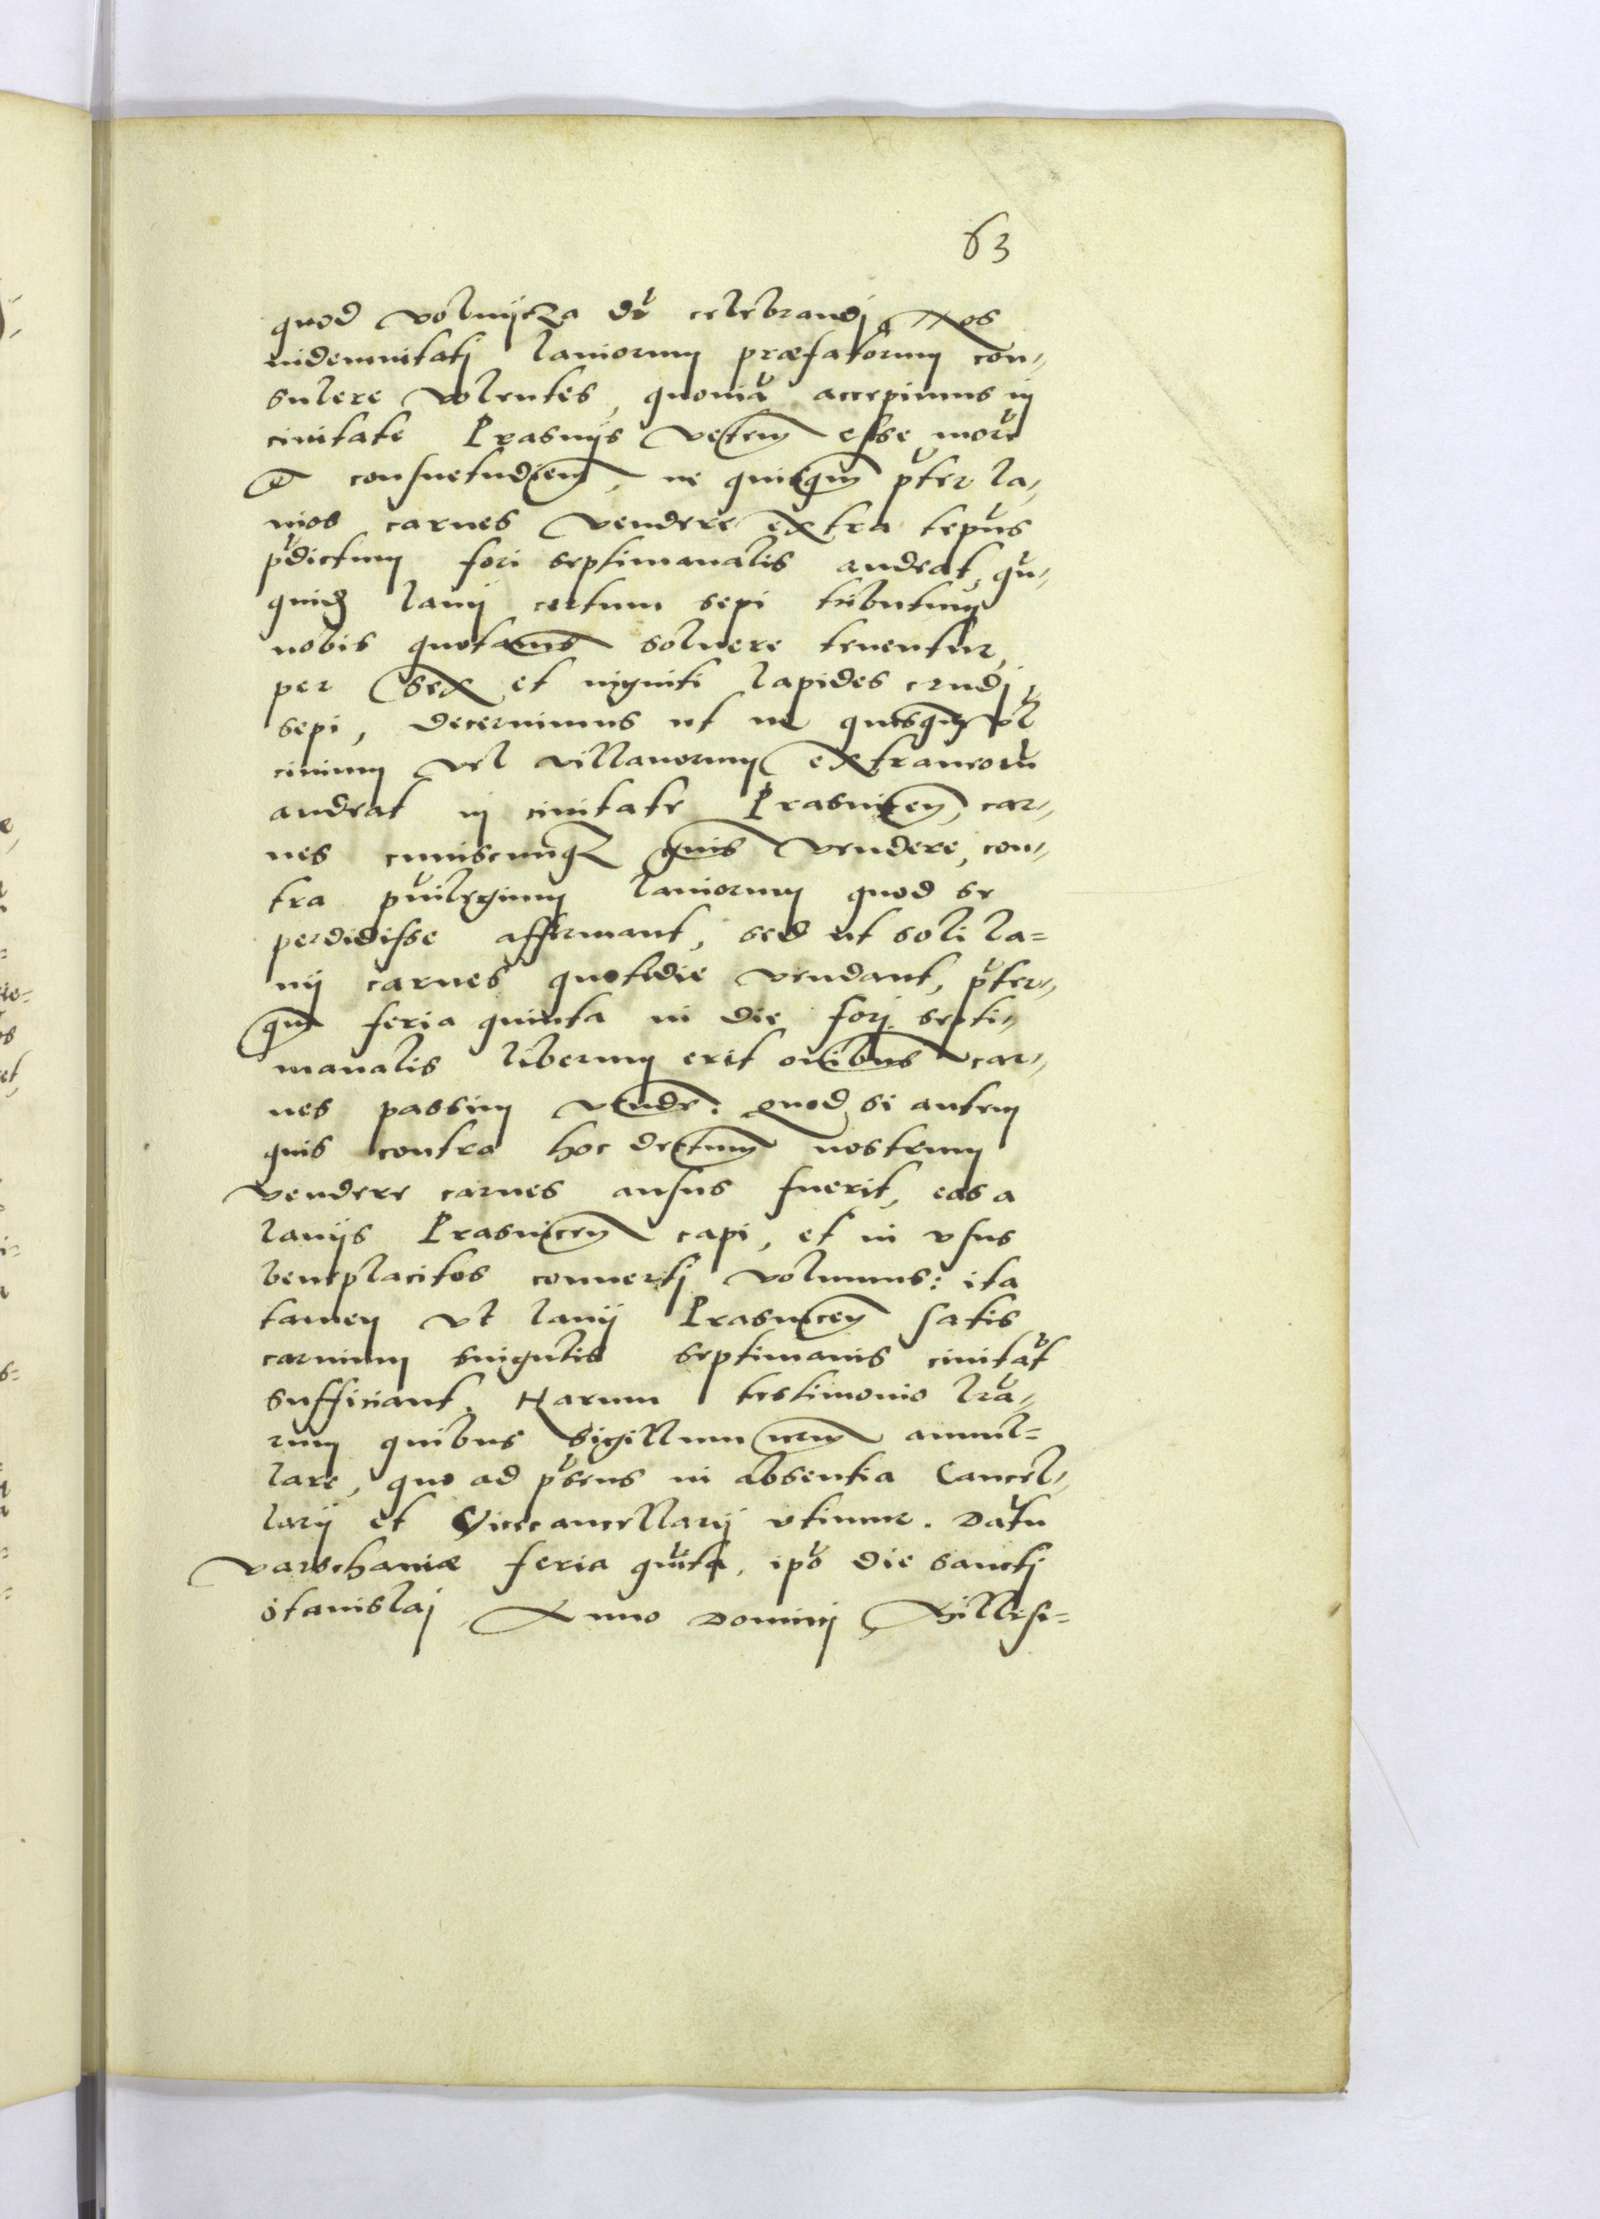 63
quod Wolnijcza dr̃ celebrandj, Nos
indemnitatj laniorum præfatorum con-
sulere volentes, quoniã accepimus in
ciuitate Prasnijs veterem esse morẽ
et consuetudiem, ne quisqm p̃ter la-
nios carnes vendere extra tep̃us
p̃dictum fori septimanalis audeat, qu-
quid lanij certum sepi tributum
nobis quotanis soluere tenentur,
per sex et viginti lapides crudj
sepi, decernimus ut ne quisqm vl̃
ciuium vel villanorum extraneorũ
audeat in ciuitate Prasnicen, car-
nes cuiuscunqz gnis vendere, con-
tra p̃uilegium laniorum quod se
perdidisse affirmant, sed ut soli la=
nij carnes quotidie vendant, p̃ter-
qm feria quinta in die forj septi-
manalis liberum erit oibus car-
nes passim vende: Quod si autem
quis contra hoc dectum nostrum
vendere carnes ausus fuerit, eas a
lanijs Prasnicen capi, et in vsus
beneplacitos conuertj volumus: ita
tamen vt lanij Prasnicen satis
carnium singulis septimanis ciuitat̃
sufficiant. Harum testimonio lrã-
rum quibus sigillum nrm annul=
lare, quo ad p̃sens in absentia Cancel-
larij et Vicecancellarij vtimur. Datũ
varschauiæ feria quĩta, ip̃o die sanctj
Stanislaj Anno Dominj Millesi=